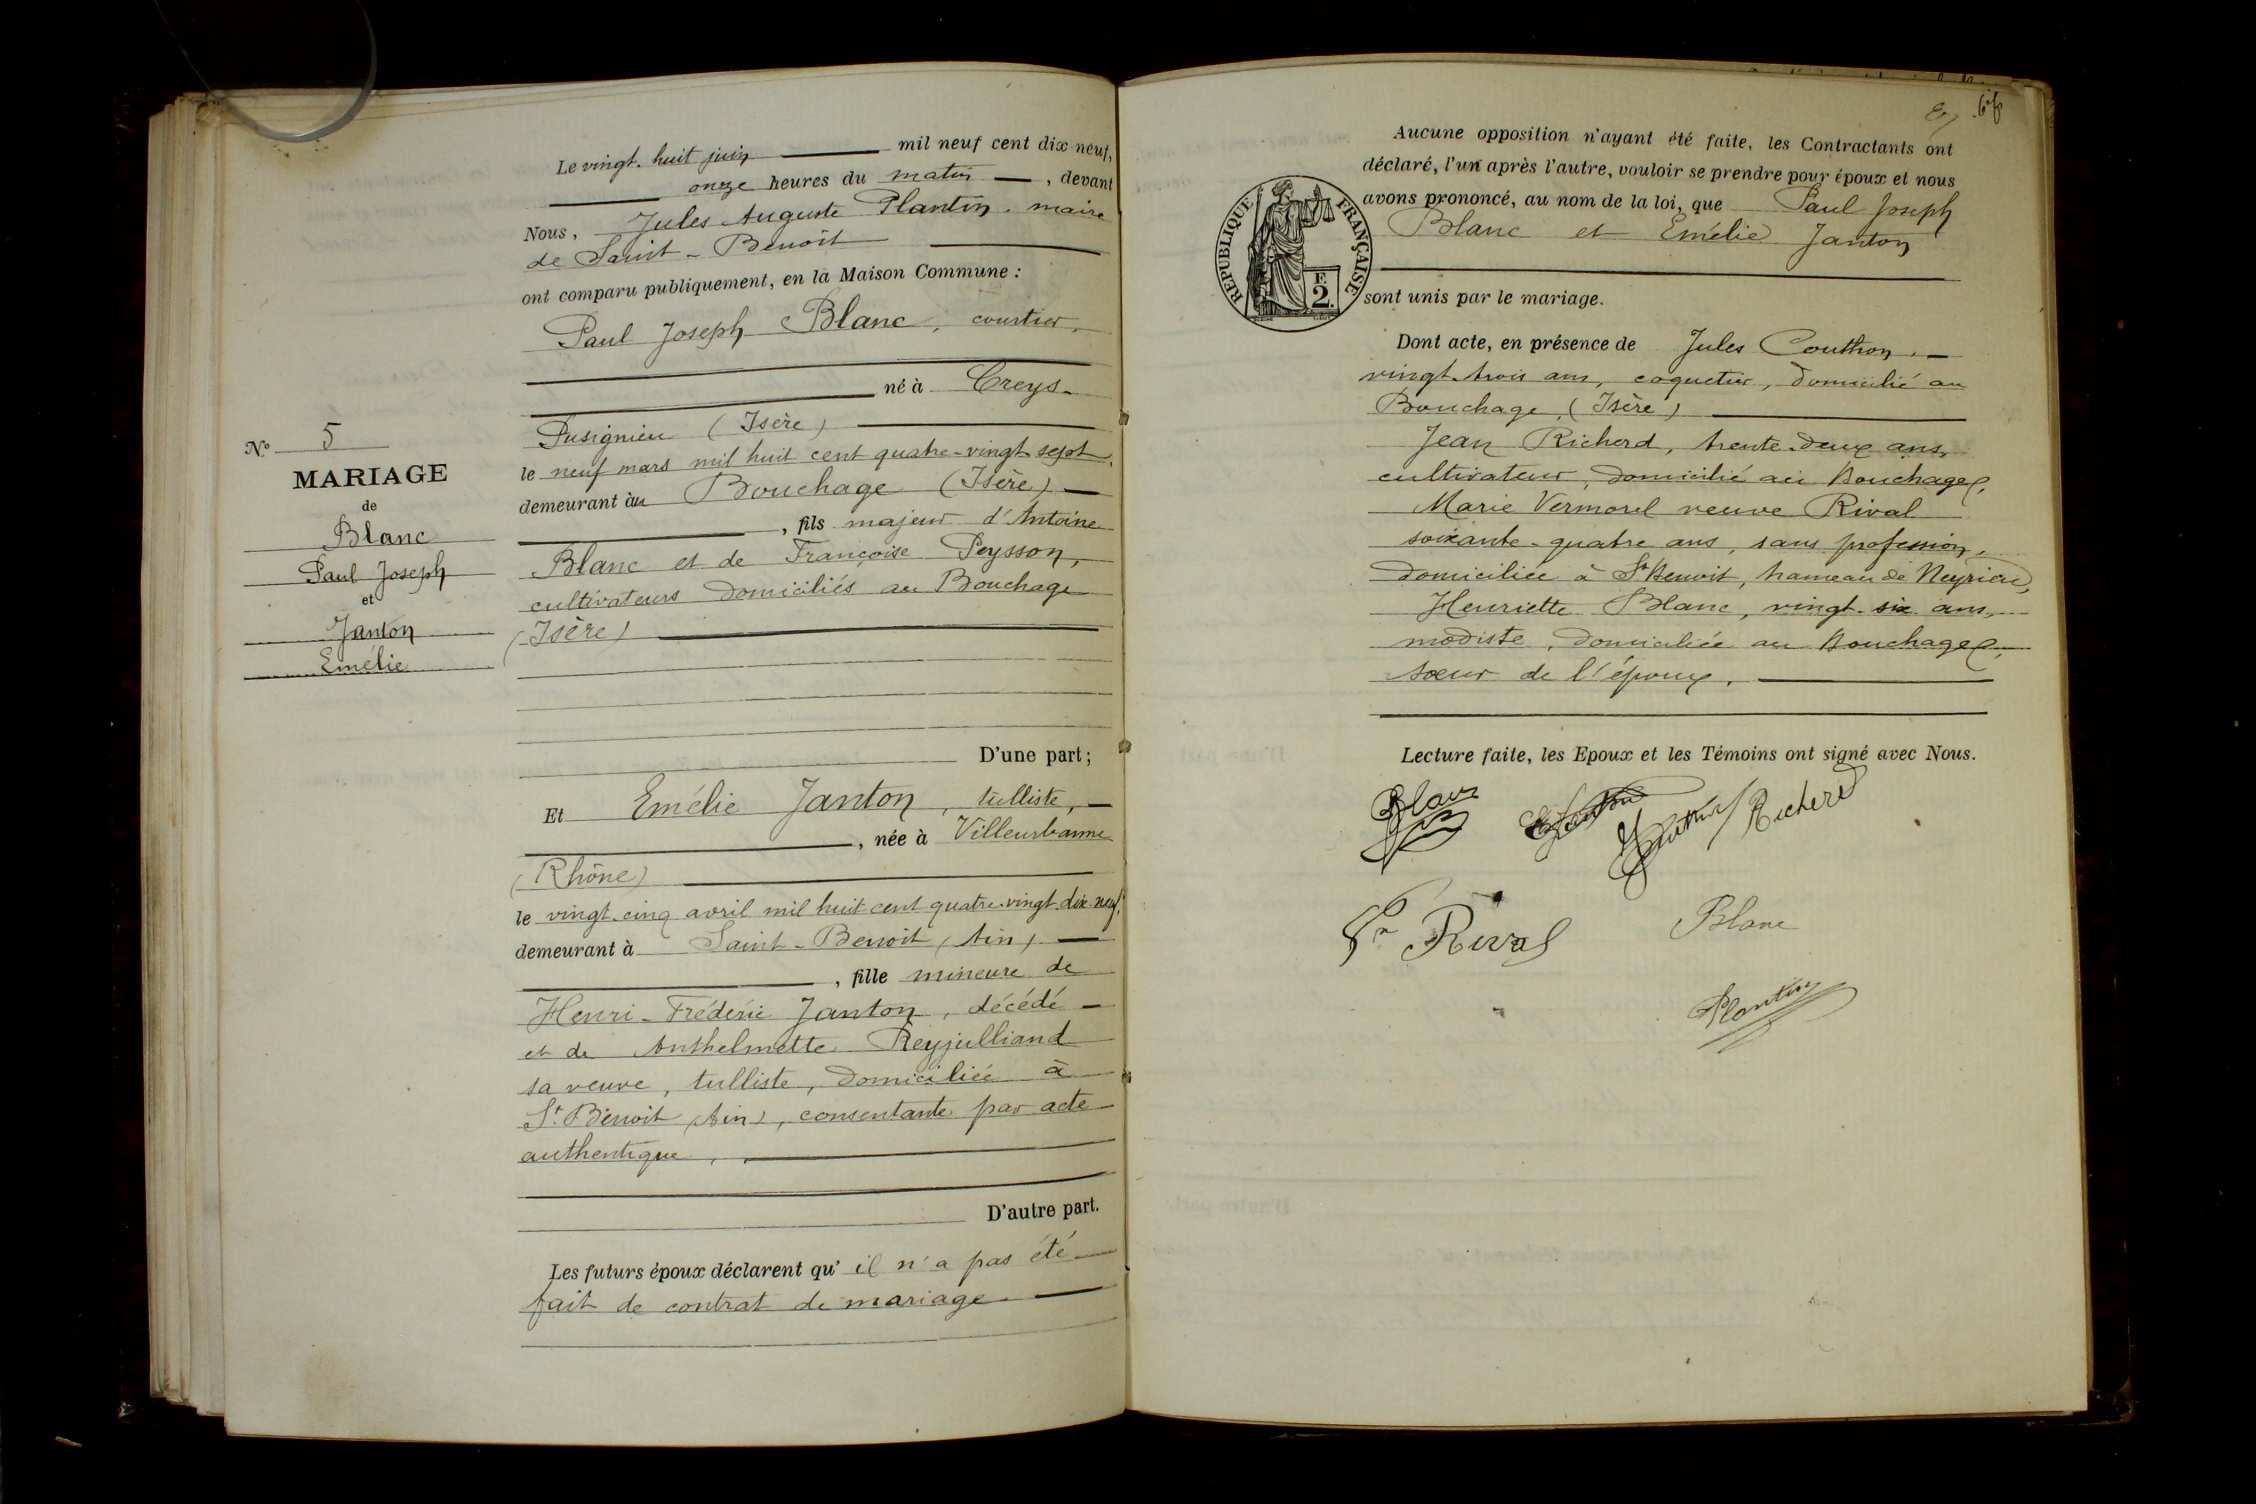 Le vingt-huit juin mil neuf cent dix-neuf,
onze heures du matin, devant
Nous, Jules Auguste Plantin, maire
de Saint-Benoit
ont comparu publiquement, en la Maison Commune :
Paul Joseph Blanc, courtier,
né à Creys-
Pusignieu (Isère)
le neuf mars mil huit cent quatre-vingt sept,
demeurant au Bouchage (Isère)
, fils majeur d'Antoine
Blanc et de Françoise Peysson,
cultivateurs domiciliés au Bouchage
(Isère)
D'une part ;
Et Emélie Janton, tulliste,
, née à Villeurbanne
(Rhône)
le vingt-cinq avril mil huit cent quatre-vingt-dix-neuf,
demeurant à Saint-Benoit (Ain)
, fille mineure de
Henri-Frédéric Janton, décédé
et de Anthelmette Reyjulliand
sa veuve, tulliste, domiciliée à
St. Benoit (Ain), consentante par acte
authentique,
D'autre part.
Les futurs époux déclarent qu'il n'a pas été
fait de contrat de mariage.
N° 5
MARIAGE
de
Blanc
Paul Joseph
et
Janton
Emélie
Aucune opposition n'ayant été faite, les Contractants ont
déclaré, l'un après l'autre, vouloir se prendre pour époux et nous
avons prononcé, au nom de la loi, que Paul Joseph
Blanc et Emélie Janton
sont unis par le mariage.
REPUBLIQUE FRANÇAISE
F.
2.
Dont acte, en présence de Jules Couthon,
vingt-trois ans, coquetier, domicilié au
Bouchage (Isère)
Jean Richerd, trente-deux ans,
cultivateur, domicilié au Bouchage,
Marie Vermorel veuve Rival
soixante-quatre ans, sans profession,
domiciliée à St Benoit, hameau de Neyrieu,
Henriette Blanc, vingt-six ans,
modiste, domiciliée au Bouchage,
sœur de l'époux.
Lecture faite, les Epoux et les Témoins ont signé avec Nous.
Blanc Janton Couthon Richerd
Ve Rival Blanc
Plantin